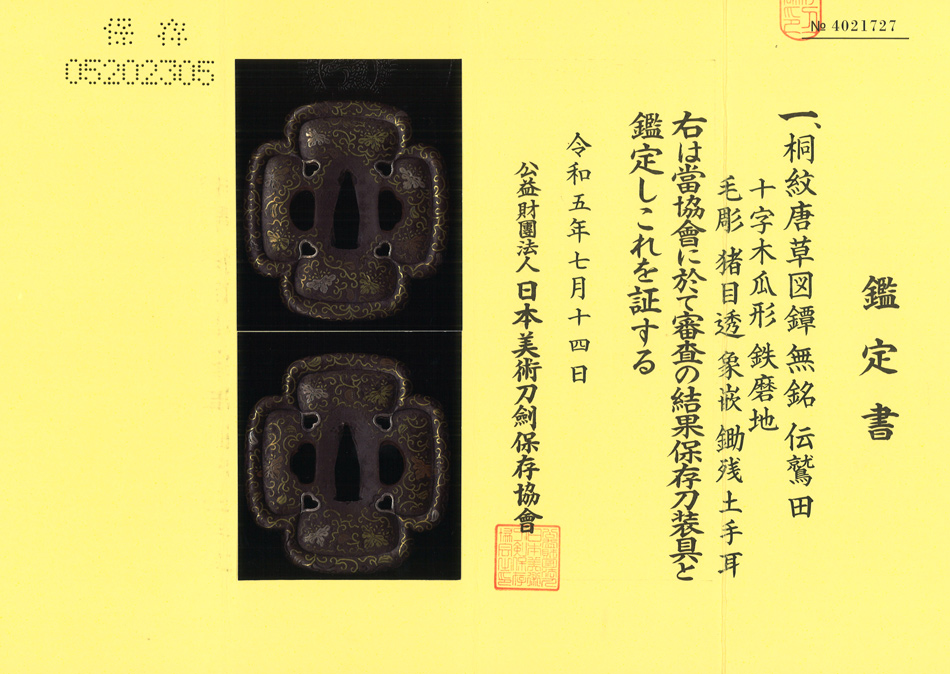 № 4021727
鑑定書
一、桐紋唐草図鐔 無銘 伝鷲田
十字木瓜形 鉄磨地
毛彫 猪目透 象嵌 鋤残 土手耳
右は當協會に於て審査の結果保存刀装具と
鑑定しこれを証する
令和五年七月十四日
公益財團法人日本美術刀劍保存協會
保存
05202305